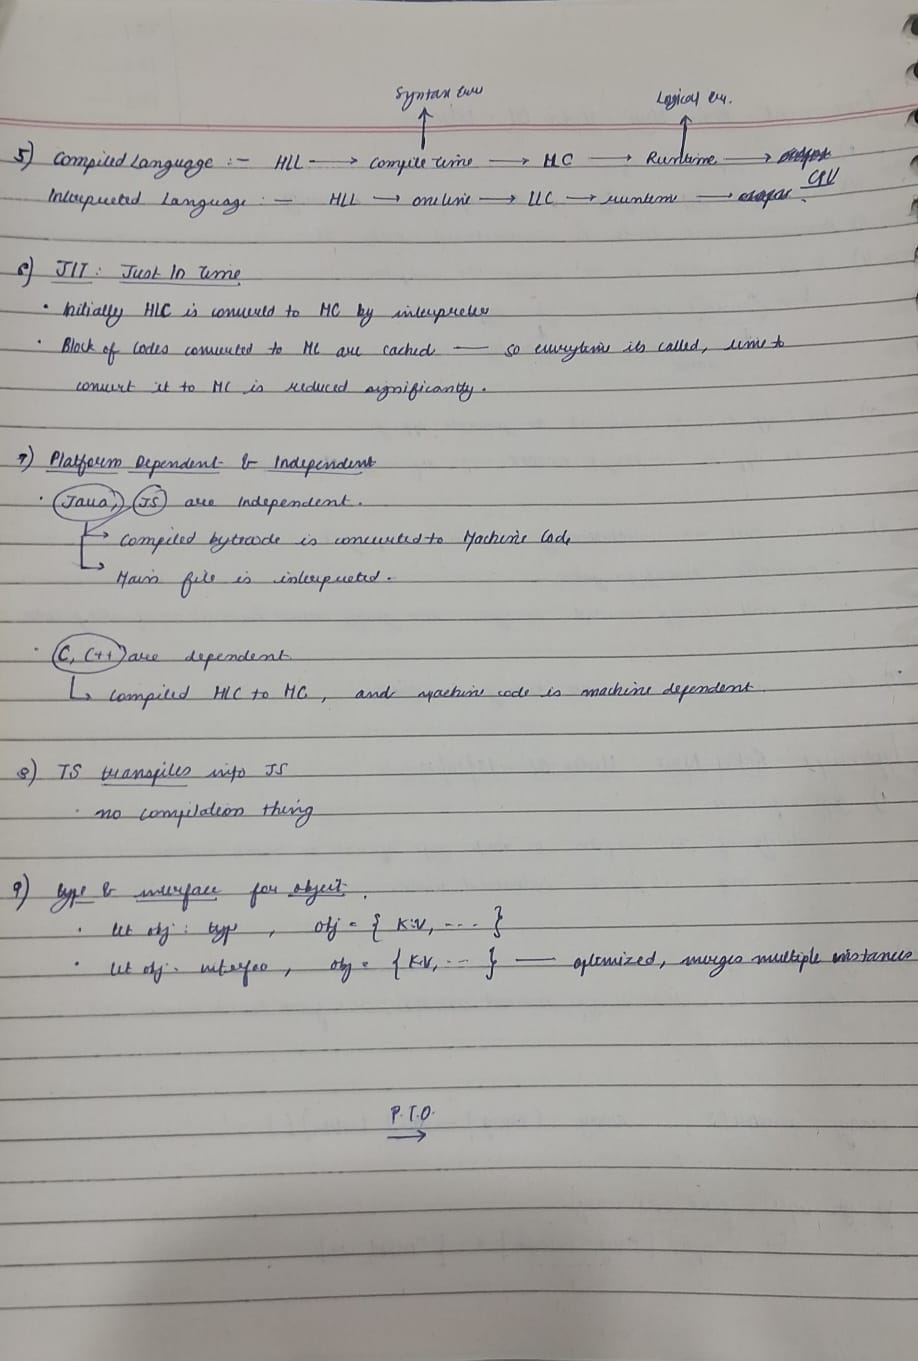 Syntax err
Logical err.
5) Compiled Language :- HLL → Compile time → MC → Runtime →
CPU
Interpreted Language :- HLL → one line → LLC → runtime →
6) JIT : Just In Time
• Initially HLC is converted to MC by interpreter
• Block of codes converted to MC are cached — so everytime its called, time to
convert it to MC is reduced significantly.
7) Platform Dependent & Independent
• Java, JS are independent.
↳ Compiled bytecode is converted to Machine Code
↳ Main file is interpreted.
• C, C++ are dependent
↳ compiled HLC to MC, and machine code is machine dependent.
8) TS transpiles into JS
• no compilation thing
9) type & interface for object.
• let obj : type, obj = { K:V, --- }
• let obj : interface, obj = { K:V, --- } — optimized, merges multiple instances
P.T.O.
→